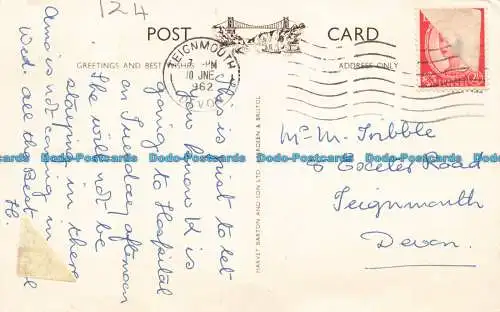 124
POST CARD
GREETINGS AND BEST WISHES
ADDRESS ONLY
TEIGNMOUTH
7 - PM
10 JNE
1962
DEVON
This is just to let
you know K is
going to Hospital
on Tuesday afternoon
She will not be
staying in there
Anna is not coming in
Wed. all the Best
HARVEY BARTON AND SON LTD
BRISTOL
Mr M. Tribble
Exeter Road
Teignmouth
Devon.
Dodo-Postcards Dodo-Postcards Dodo-Postcards Dodo-Postcards